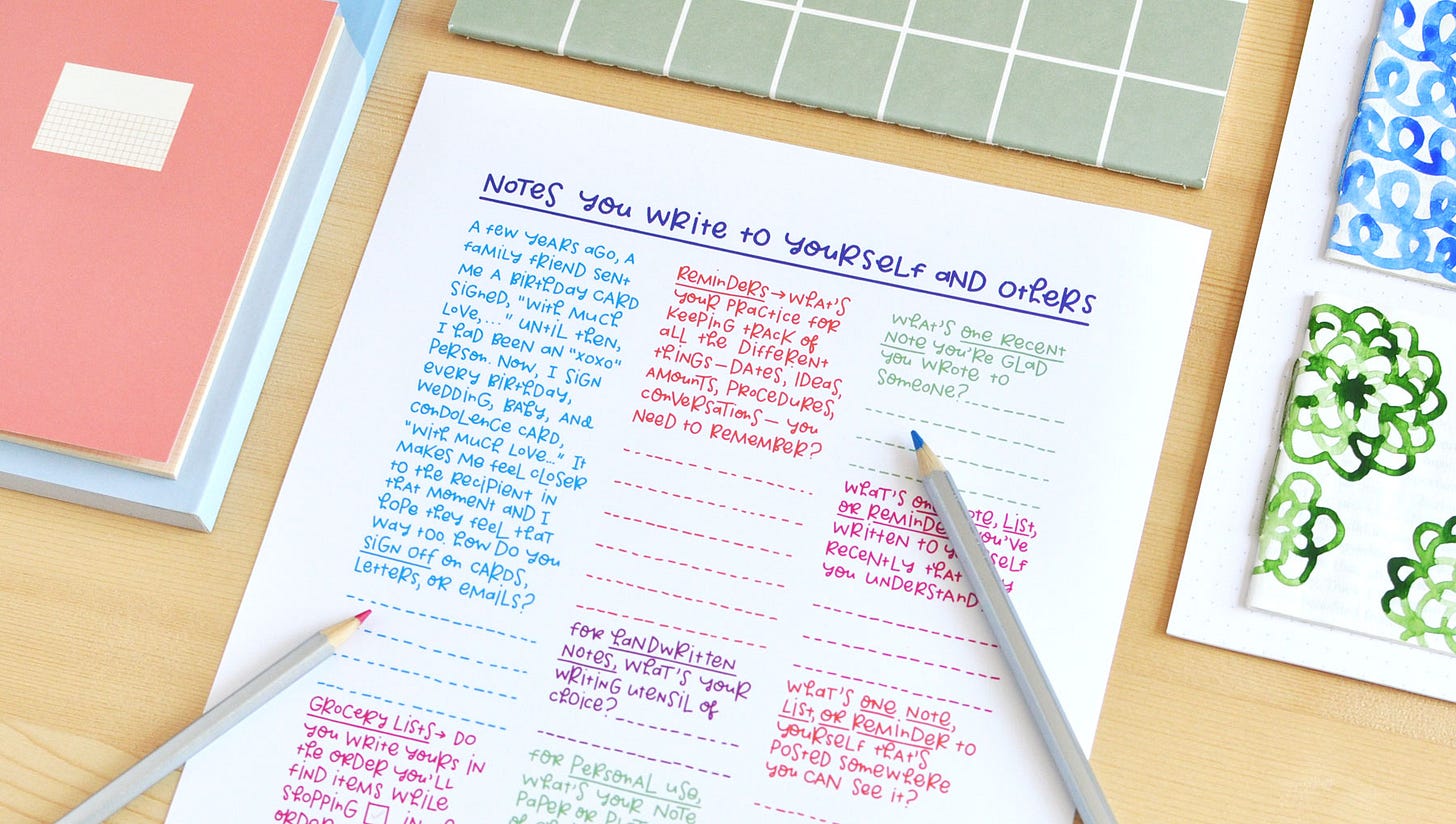 Notes you write to yourself and others
A few years ago, a
family friend sent
me a birthday card
signed, "With much
love,..." Until then,
I had been an "xoxo"
person. Now, I sign
every birthday,
wedding, baby, and
condolence card,
"With much love..." It
makes me feel closer
to the recipient in
that moment and I
hope they feel that
way too. How do you
sign off on cards,
letters, or emails?
Grocery lists→ Do
you write yours in
the order you'll
find items while
shopping ☐ in
order
Reminders→What's
your practice for
keeping track of
all the different
things—dates, ideas,
amounts, procedures,
conversations—you
need to remember?
For handwritten
notes, what's your
writing utensil of
choice?
For personal use,
what's your note
paper or
What's one recent
note you're glad
you wrote to
someone?
What's one note, list,
or reminder you've
written to yourself
recently that
you understand
What's one note,
list, or reminder to
yourself that's
posted somewhere
you can see it?